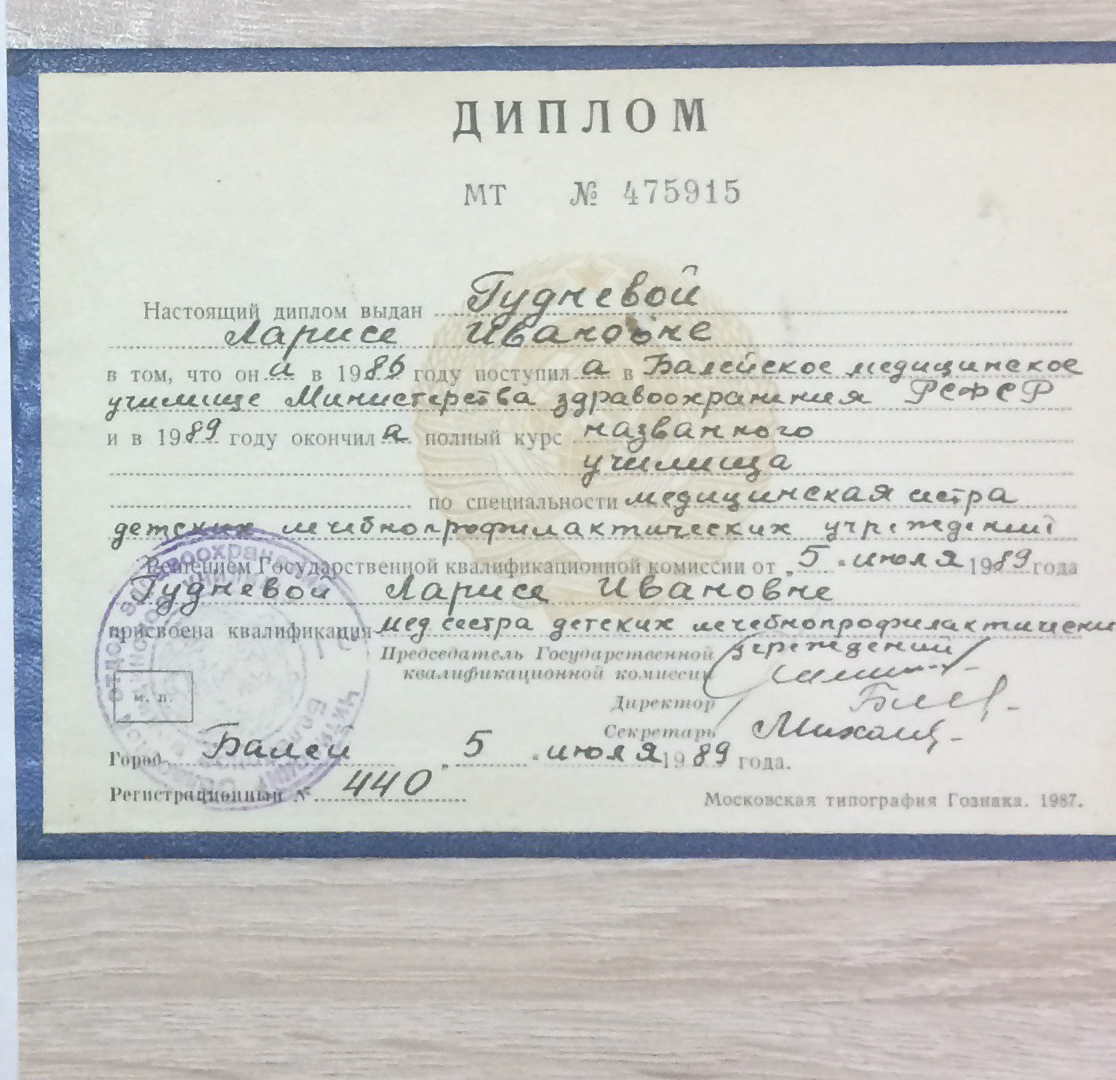 ДИПЛОМ
МТ № 475915
Настоящий диплом выдан Гудневой
Ларисе Ивановне
в том, что он а в 1986 году поступил а в Балейское медицинское
училище Министерства здравоохранения РСФСР
и в 1989 году окончил а полный курс названного
училища
по специальности медицинская сестра
детских лечебнопрофилактических учреждений
Решением Государственной квалификационной комиссии от „5" июля 1989 года
Гудневой Ларисе Ивановне
присвоена квалификация мед сестра детских лечебнопрофилактически
Председатель Государственной учреждений
квалификационной комиссии
Директор
Секретарь
м. п.
Город Балей „5" июля 1989 года.
Регистрационный № 440
Московская типография Гознака. 1987.